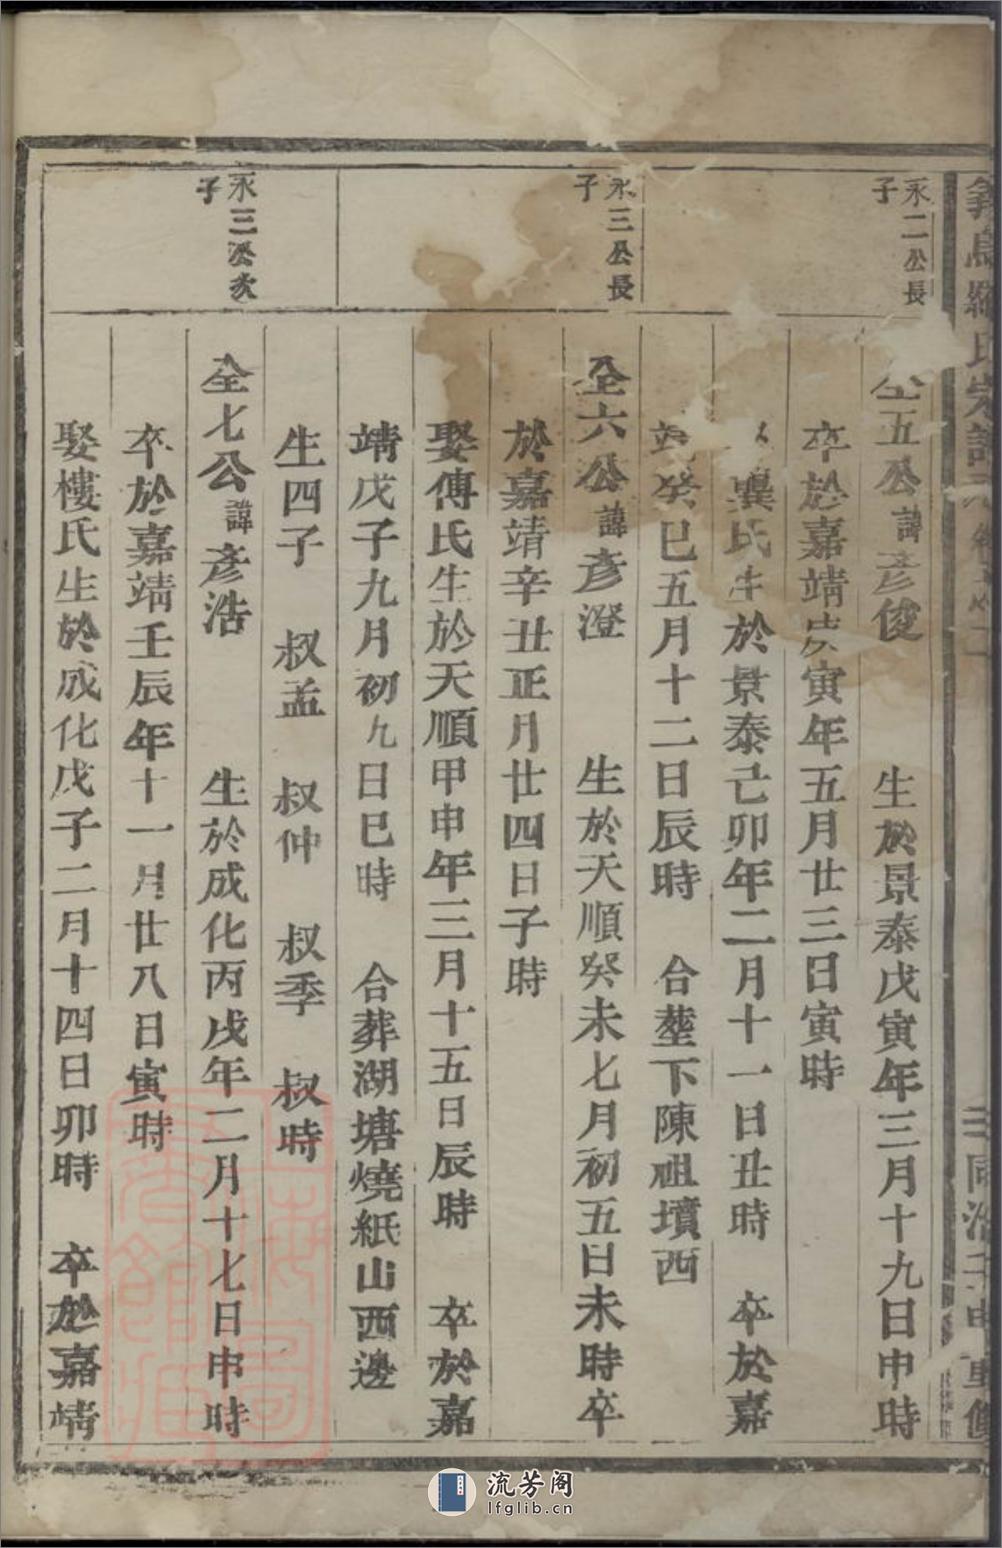 羅氏宗譜
同治壬申重修
永二公長
子
全五公諱彥俊 生於景泰戊寅年三月十九日申時
卒於嘉靖庚寅年五月廿三日寅時
龔氏生於景泰己卯年二月十一日丑時 卒於嘉
靖癸巳五月十二日辰時 合塟下陳祖墳西
永三公長
子
全六公諱彥澄 生於天順癸未七月初五日未時卒
於嘉靖辛丑正月廿四日子時
娶傅氏生於天順甲申年三月十五日辰時 卒於嘉
靖戊子九月初九日巳時 合葬湖塘燒紙山西邊
生四子 叔孟 叔仲 叔季 叔時
永三公次
子
全七公諱彥浩 生於成化丙戌年二月十七日申時
卒於嘉靖壬辰年十一月廿八日寅時
娶樓氏生於成化戊子二月十四日卯時 卒於嘉靖
流芳阁
lfglib.cn